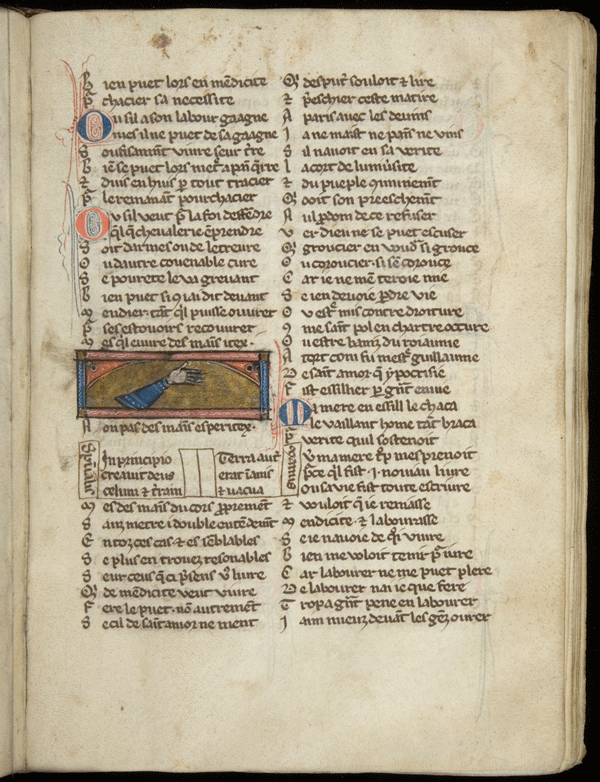 Bien puet lors en mẽdicite
P̃chacier sa necessite
Ou sil a son labour gaagne
Mes il ne puet de sa gaagne
Souffisanmt̃ viure seur t̃re
Biẽ se puet lors met̃ a pain q̃rre
Et duis en huis p̃ tout tracier
P̃ le remanãt pourchacier
Ou sil veut p̃ la foi deffendre
Soit darmes ou de letreure
Ou dautre couenable cure
Se pourete le va greuant
Bien puet si q̃ iai dit deuant
Mendier tãt q̃l puisse ouurer
P̃ ses estouoirs recouurer
Mes q̃l euure des mais itex
Non pas des mais esperitex
In principio
creauit deus
celum & t̃ram
Terra aut̃
erat ĩanis
& uacua
Mes des mais du cors p̃prement
Sanz metre i double entẽdemt̃
En touz ces cas & es sẽblables
Se plus en trouez resonables
Seur ceus que ci p̃sens vo liure
Qui de mẽdicite veut viure
Fere le puet non autrement
Se cil de sait amor ne ment
Qui desput̃ souloit & lire
Et p̃eschier ceste matire
A paris auec les deuins
Ia ne maist ne pains ne vins
Sil nauoit en sa verite
Lacort de luniũsite
Et du pueple q̃munement
Qui ooit son preeschemt̃
Nul p̃dom de ce refuser
Ver dieu ne se puet escuser
Qui groucier en voudra si gronce
Ou coroucier si sẽ coronce
Car ie ne mẽ teroie mie
Se ien deuoie p̃dre vie
Ou estre mis contre droiture
Comme saint pol en chartre occure
Ou estre bannis du roiaume
A tort com fu mestre guillaume
De saint amor q̃ ypocrisie
Fist essillier p̃ g̃nt enuie
Ma mere en essill le chaca
Le vaillant home tãt braca
P̃ verite quil soustenoit
Vs ma mere t̃p mesprenoit
P̃ce q̃l fist .i. nouiau liure
Ou sa vie fist toute escriure
Et vouloit q̃ ie reniasse
Mendicite & labourasse
Se ie nauoie de q̃i viure
Bien me voloit tenir p̃ iure
Car labourer ne me puet plere
De labourer nai ie que fere
Trop a g̃nt pene en labourer
Iaim mieuz deuãt les gẽz ourer